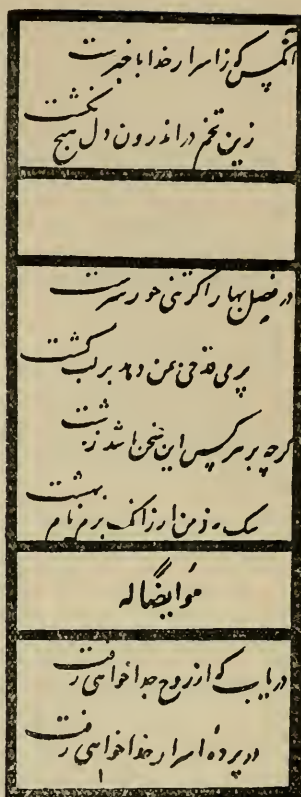 آنکس که ز اسرار خدا با خبرست
زین تخم در اندرون دل هیچ نکشت
در فصل بهار اگر تنی حور سرشت
پر می قدحی بمن دهد بر لب کشت
گرچه بر هرکس این سخن باشد زشت
سگ به ز من ار زانکه برم نام بهشت
و ایضاً له
دریاب که از روح جدا خواهی رفت
در پردهٔ اسرار خدا خواهی رفت